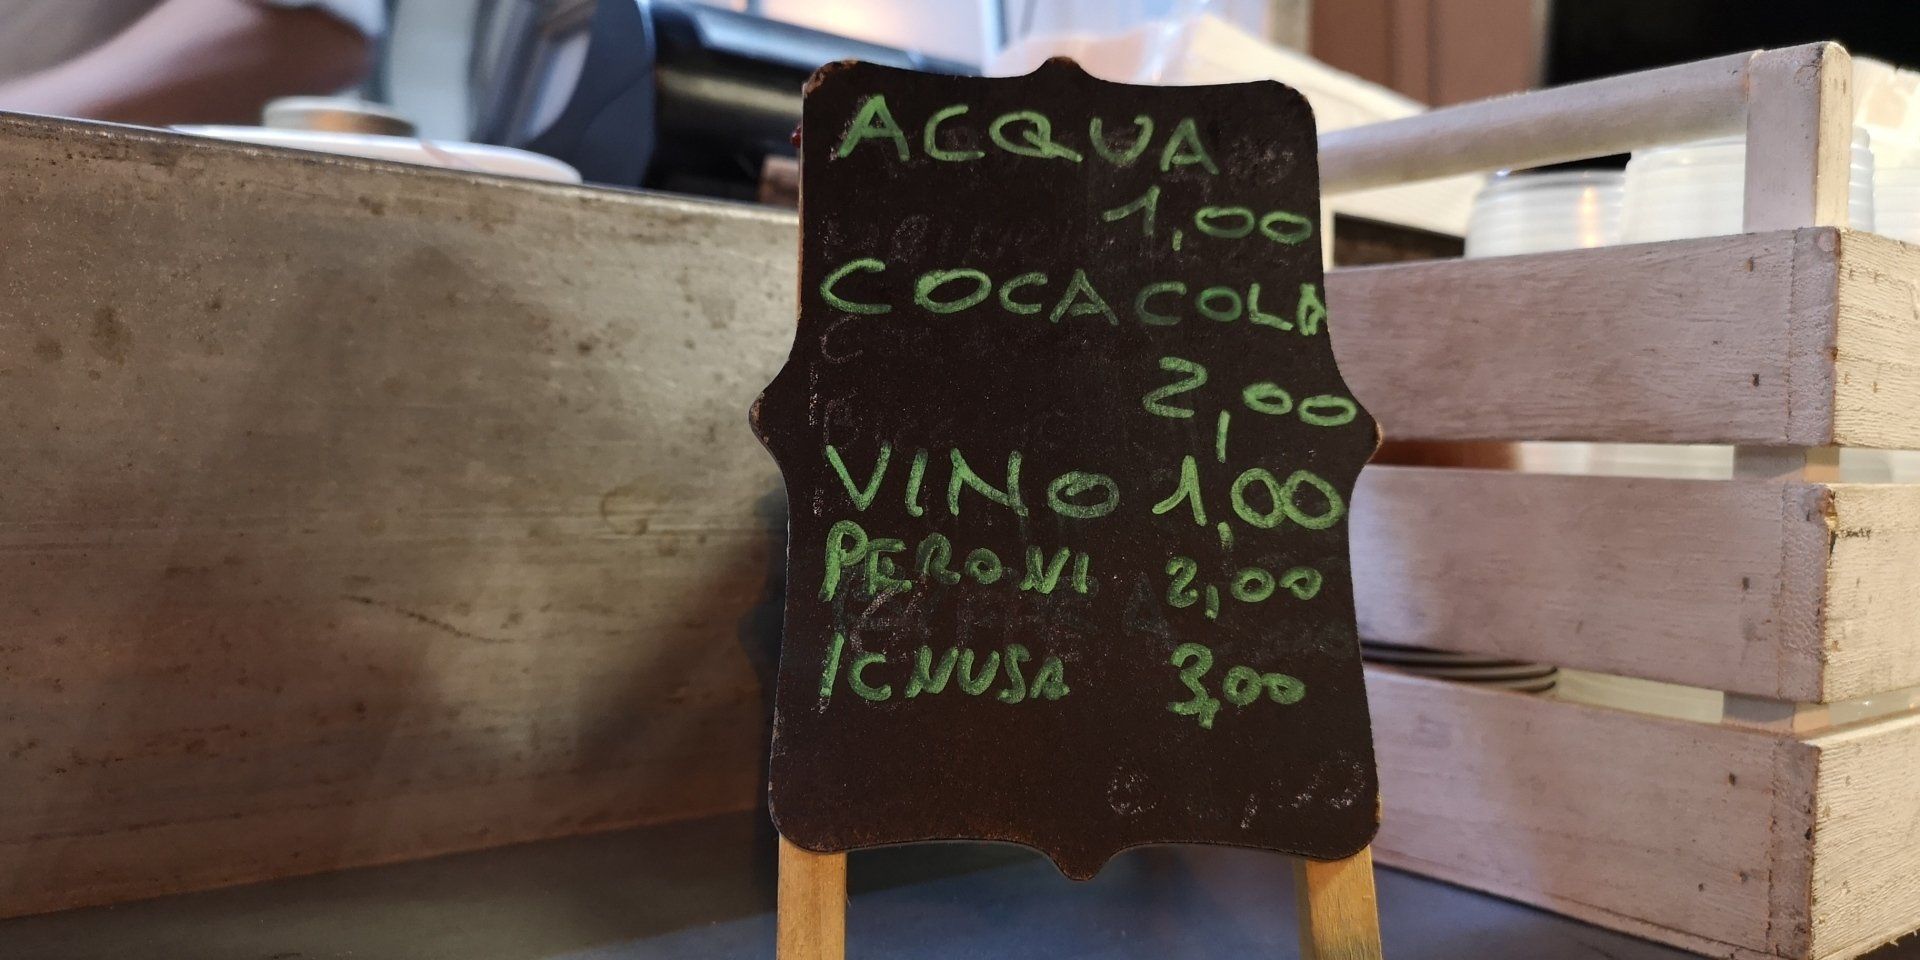 ACQUA
1,00
COCA COLA
2,00
VINO 1,00
PERONI 2,00
ICNUSA 3,00